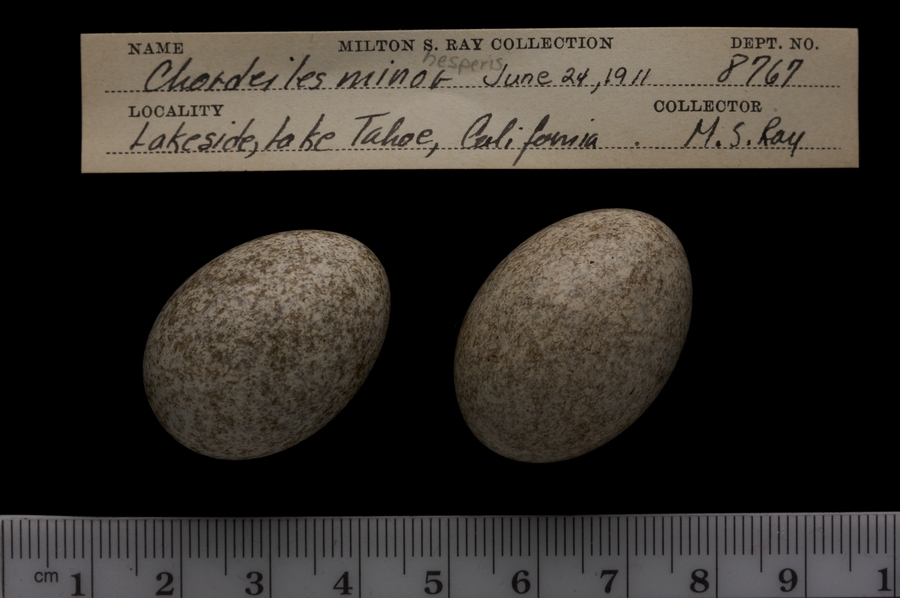 NAME MILTON S. RAY COLLECTION DEPT. NO.
hesperis
Chordeiles minor June 24, 1911 8767
LOCALITY COLLECTOR
Lakeside, Lake Tahoe, California. M. S. Ray
cm 1 2 3 4 5 6 7 8 9 1